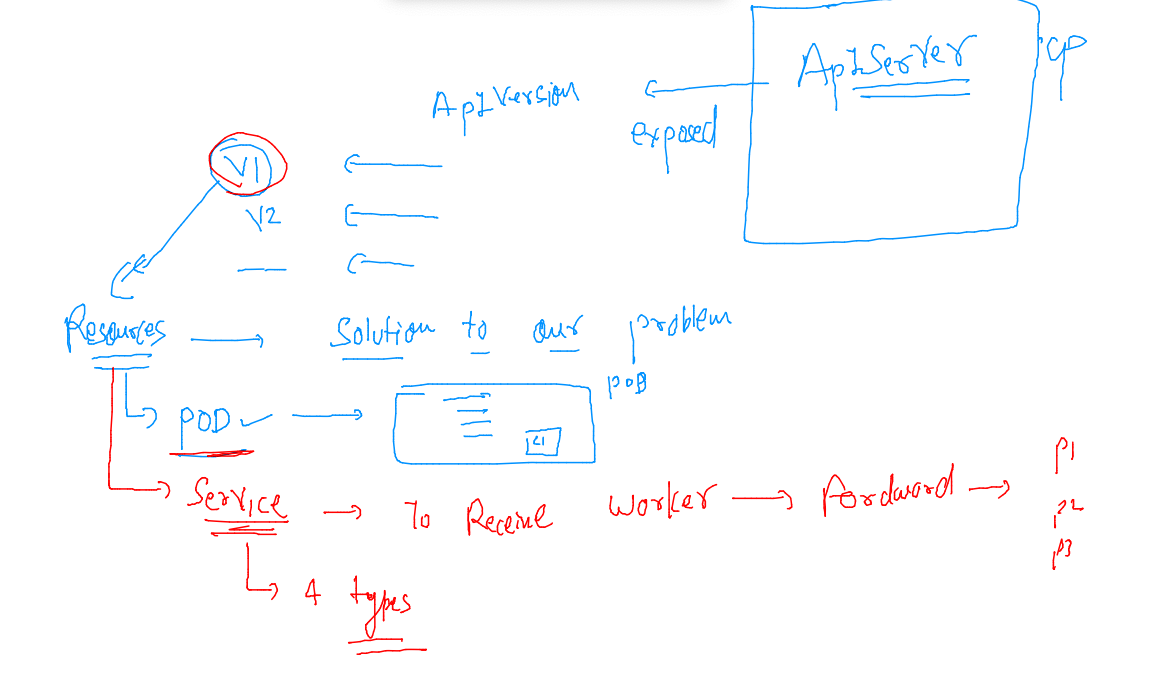 ApI Server
CP
ApI Version
exposed
V1
V2
Resources → Solution to our problem
POD ✓ →
POD
C1
Service → To Receive Worker → Fordward → P1
P2
P3
4 types